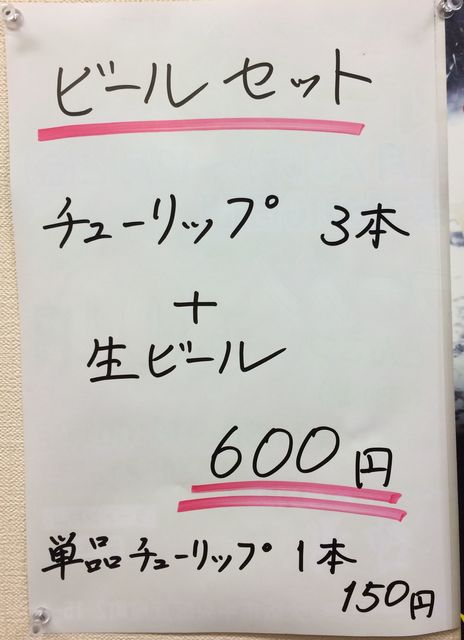 ビールセット
チューリップ 3本
+
生ビール
600円
単品チューリップ 1本
150円